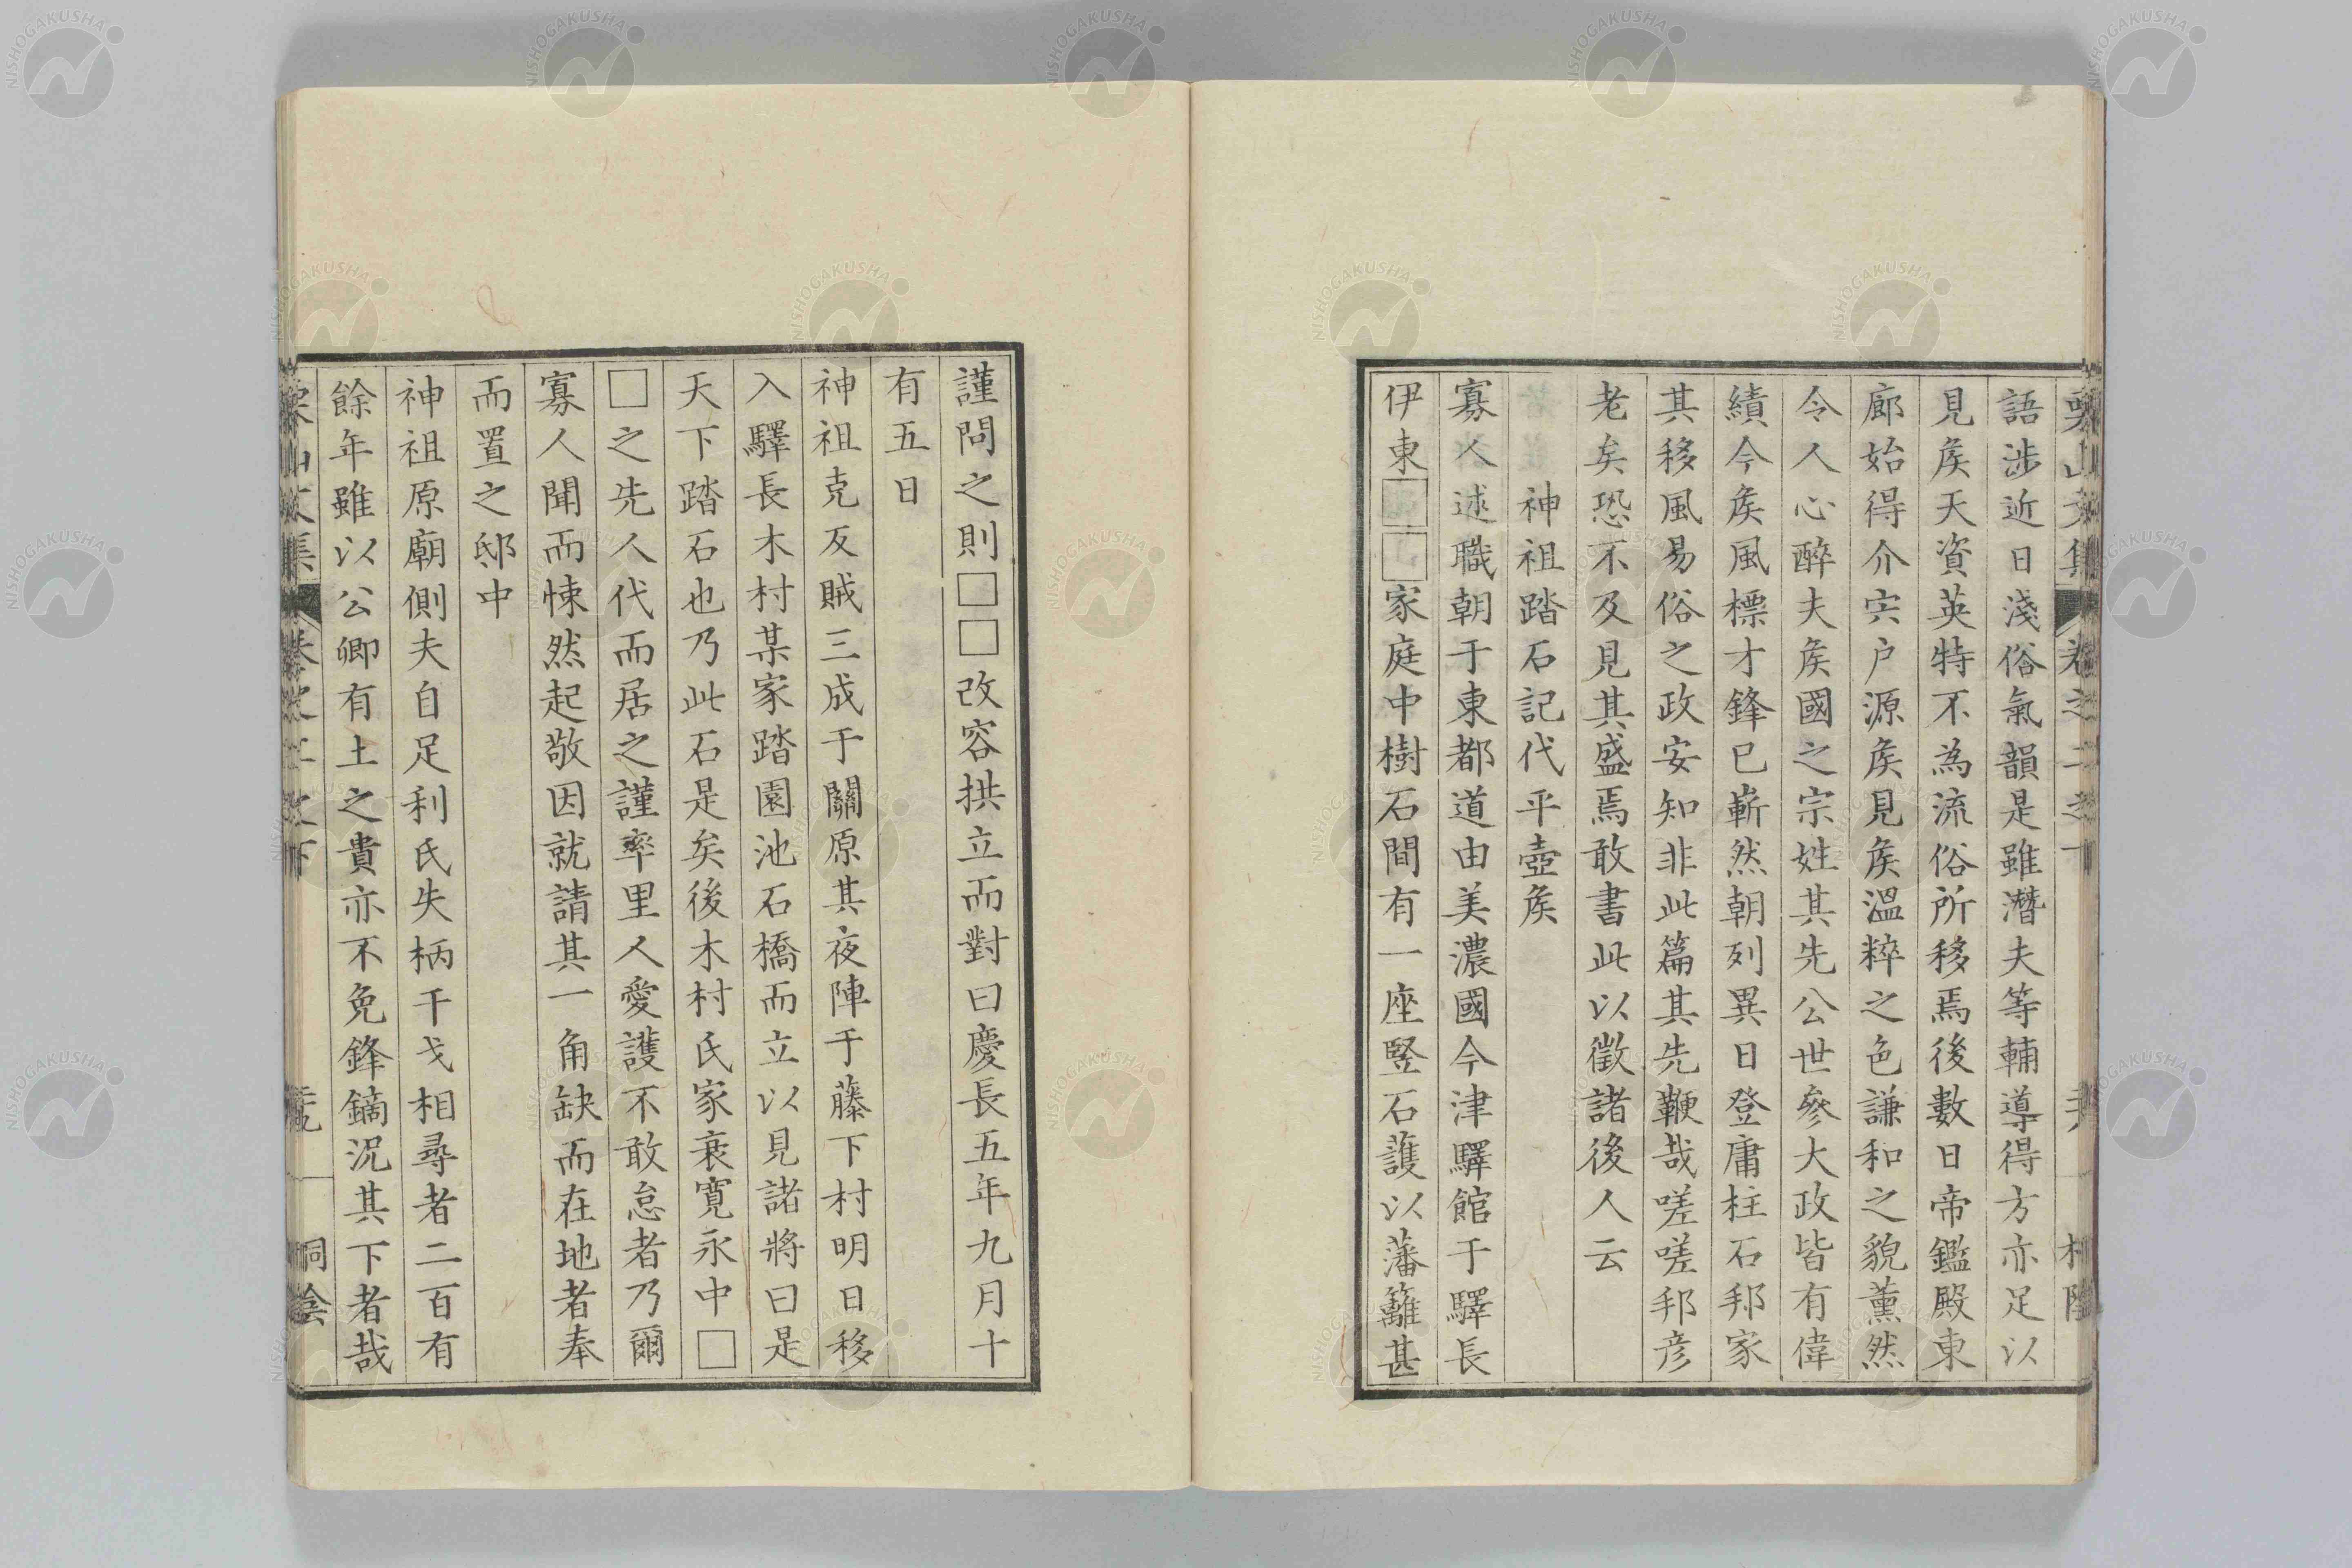 語涉近日淺俗氣韻是雖潛夫等輔導得方亦足以
見矦天資英特不為流俗所移焉後數日帝鑑殿東
廊始得介宍户源矦見矦溫粹之色謙和之貌薰然
令人心醉夫矦國之宗姓其先公世參大政皆有偉
績今矦風標才鋒已嶄然朝列異日登庸柱石邦家
其移風易俗之政安知非此篇其先鞭哉嗟嗟邦彦
老矣恐不及見其盛焉敢書此以徵諸後人云
神祖踏石記代平壺矦
寡人述職朝于東都道由美濃國今津驛館于驛長
伊東□□家庭中樹石間有一座竪石護以藩籬甚
謹問之則□□改容拱立而對曰慶長五年九月十
有五日
神祖克反賊三成于關原其夜陣于藤下村明日移
入驛長木村某家踏園池石橋而立以見諸將曰是
天下踏石也乃此石是矣後木村氏家衰寬永中□
□之先人代而居之謹率里人愛護不敢怠者乃爾
寡人聞而悚然起敬因就請其一角缺而在地者奉
而置之邸中
神祖原廟側夫自足利氏失柄干戈相尋者二百有
餘年雖以公卿有土之貴亦不免鋒鏑況其下者哉
NISHOGAKUSHA